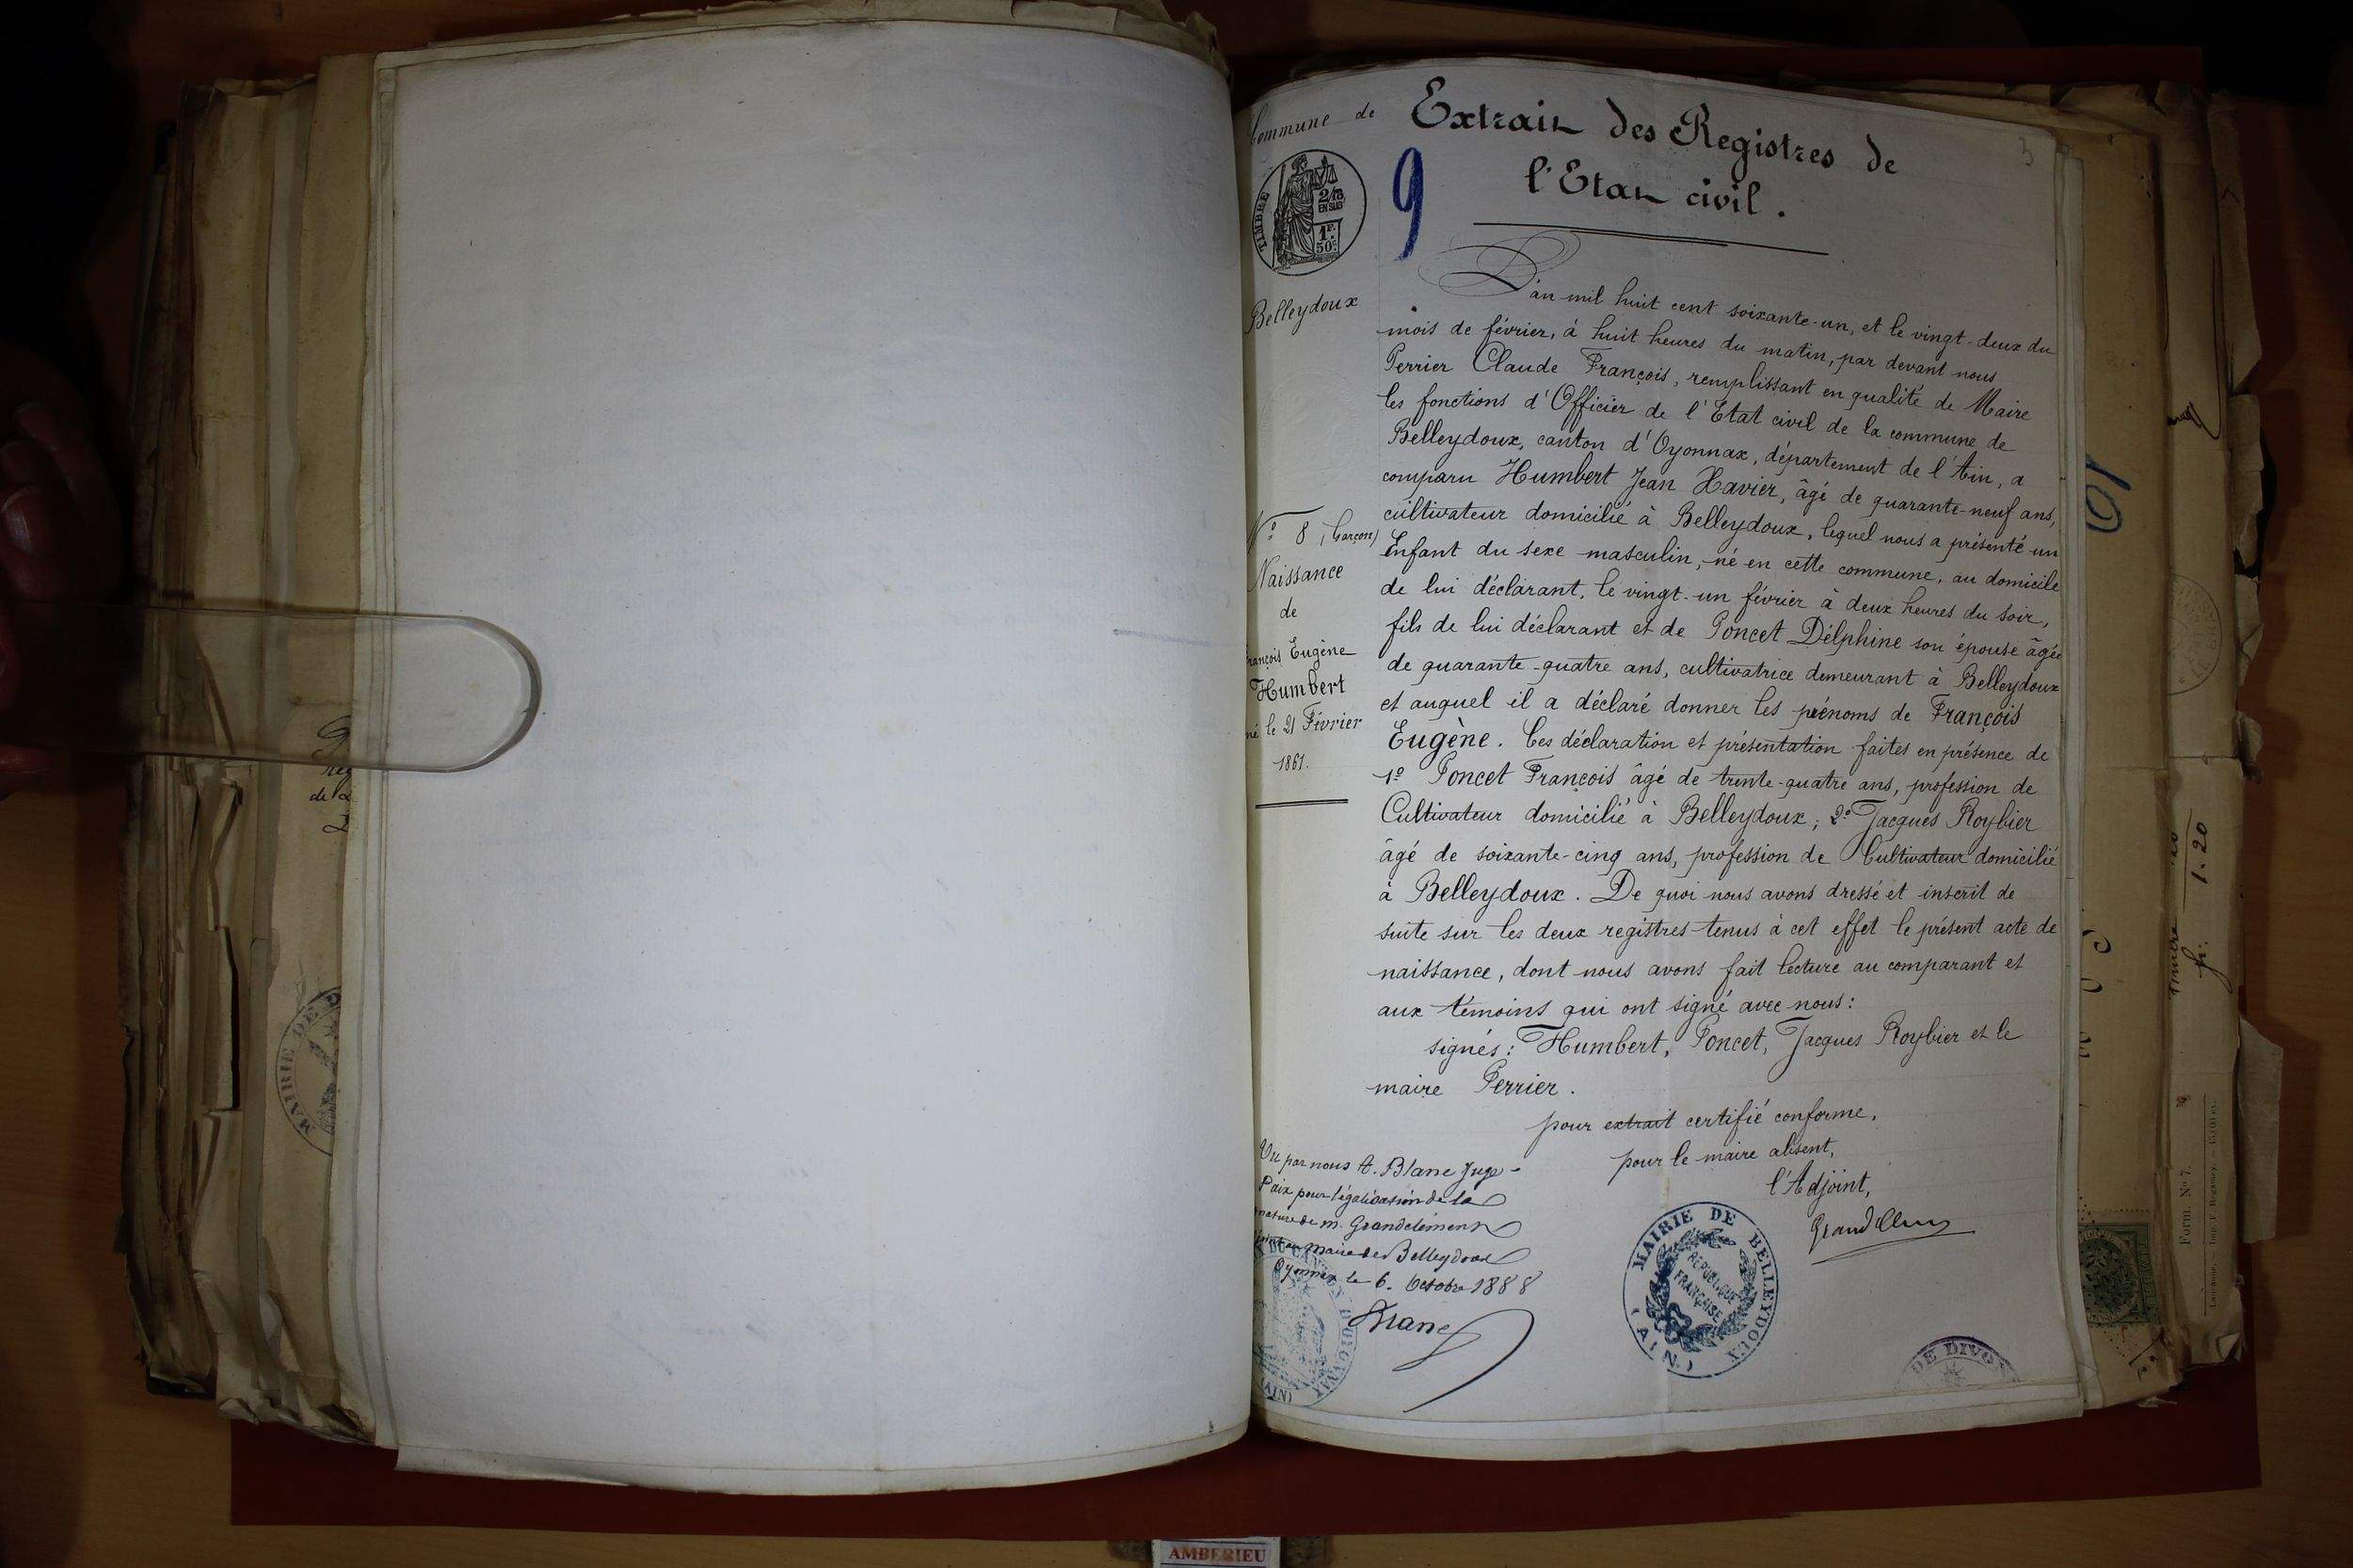 Commune de
TIMBRE
2/10
EN SUS
1F.
50c.
Belleydoux
9
3
Extrait des Registres de
l'Etat civil.
L'an mil huit cent soixante-un, et le vingt-deux du
mois de février, à huit heures du matin, par devant nous
Perrier Claude François, remplissant en qualité de Maire
les fonctions d'Officier de l'Etat civil de la commune de
Belleydoux, canton d'Oyonnax, département de l'Ain, a
comparu Humbert Jean Xavier, âgé de quarante-neuf ans,
cultivateur domicilié à Belleydoux, lequel nous a présenté un
Enfant du sexe masculin, né en cette commune, au domicile
de lui déclarant, le vingt-un février à deux heures du soir,
fils de lui déclarant et de Poncet Délphine son épouse âgée
de quarante-quatre ans, cultivatrice demeurant à Belleydoux
et auquel il a déclaré donner les prénoms de François
Eugène. Ces déclaration et présentation faites en présence de
1º Poncet François âgé de trente-quatre ans, profession de
Cultivateur domicilié à Belleydoux; 2º Jacques Roybier
âgé de soixante-cinq ans, profession de Cultivateur domicilié
à Belleydoux. De quoi nous avons dressé et inscrit de
suite sur les deux registres tenus à cet effet le présent acte de
naissance, dont nous avons fait lecture au comparant et
aux témoins qui ont signé avec nous:
signés: Humbert, Poncet, Jacques Roybier et le
maire Perrier.
pour extrait certifié conforme,
pour le maire absent,
l'Adjoint,
Grandclém
Nº 8 (Garçon)
Naissance
de
François Eugène
Humbert
né le 21 Février
1861.
Vu par nous A. Blanc Juge
Paix pour légalisation de la
nature de m. Grandclément
maire de Belleydoux
Oyonnax le 6. Octobre 1888
Blanc
DU CANTON D'OYONNAX
(AIN)
MAIRIE DE BELLEYDOUX
RÉPUBLIQUE
FRANÇAISE
(AIN)
DE DIVON
MAIRIE DE D
10
1.20
Form. Nº 7.
AMBERIEU